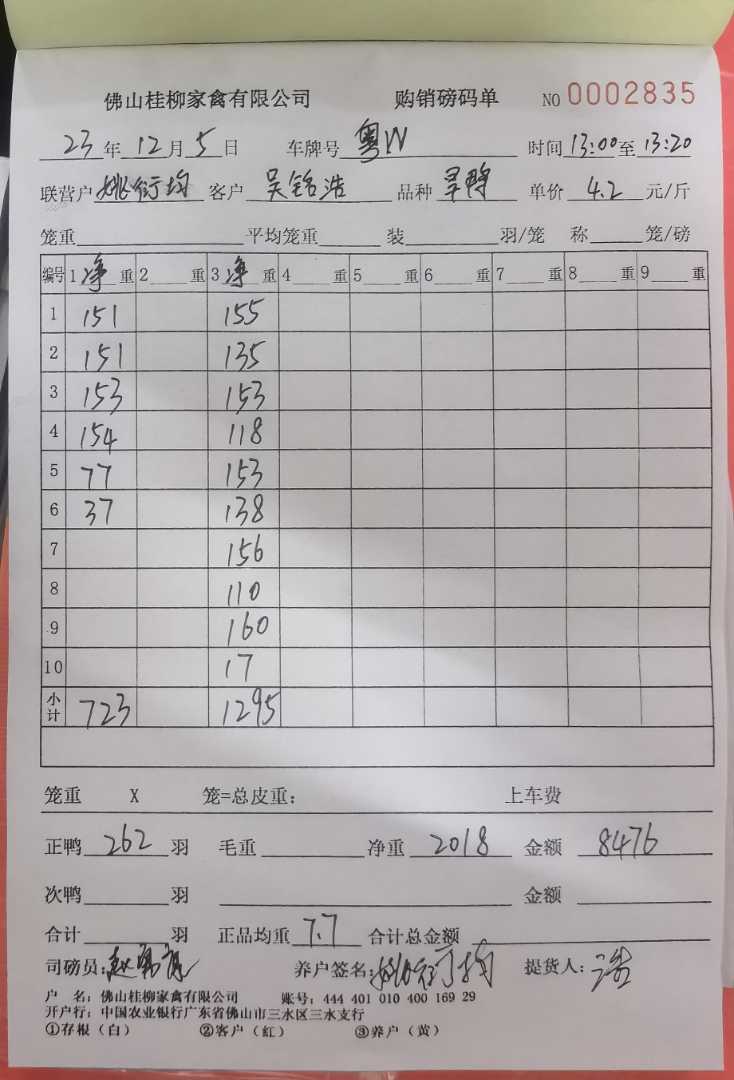 佛山桂柳家禽有限公司 购销磅码单 NO 0002835
23年 12月 5日 车牌号 粤W 时间 13:00至 13:20
联营户 姚衍均 客户 吴铭浩 品种 旱鸭 单价 4.2 元/斤
笼重 平均笼重 装 羽/笼 称 笼/磅
编号 1 净 重 2 重 3 净 重 4 重 5 重 6 重 7 重 8 重 9 重
1 151 155
2 151 135
3 153 153
4 154 118
5 77 153
6 37 138
7 156
8 110
9 160
10 17
小计 723 1295
笼重 X 笼=总皮重: 上车费
正鸭 262 羽 毛重 净重 2018 金额 8476
次鸭 羽 金额
合计 羽 正品均重 7.7 合计总金额
司磅员: 养户签名: 姚衍均 提货人: 浩
户 名: 佛山桂柳家禽有限公司 账号: 444 401 010 400 169 29
开户行: 中国农业银行广东省佛山市三水区三水支行
①存根(白) ②客户(红) ③养户(黄)